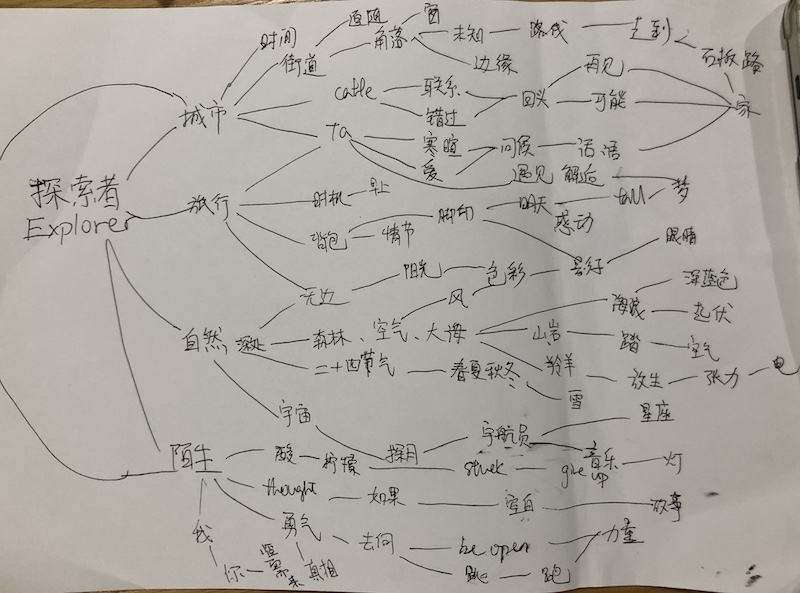 探索者
Explorer
城市
时间
街道
角落
窗
未知
边缘
路线
走到
石板路
家
cable
联系
错过
回头
再见
可能
Ta
寒暄
爱
问候
话语
遇见
邂逅
旅行
时机
早上
背包
情节
脚印
明天
感动
tall
梦
无边
阳光
色彩
风
眼睛
自然
深处
森林、空气、大海
海浪
深蓝色
起伏
山岩
踏
空气
羚羊
放生
张力
电
二十四节气
春夏秋冬
雪
宇宙
探月
宇航员
星座
音乐
陌生
酸
柠檬
stuck
give up
灯
thought
如果
空白
故事
勇气
去向
be open
力量
跳
跑
真相
我
你